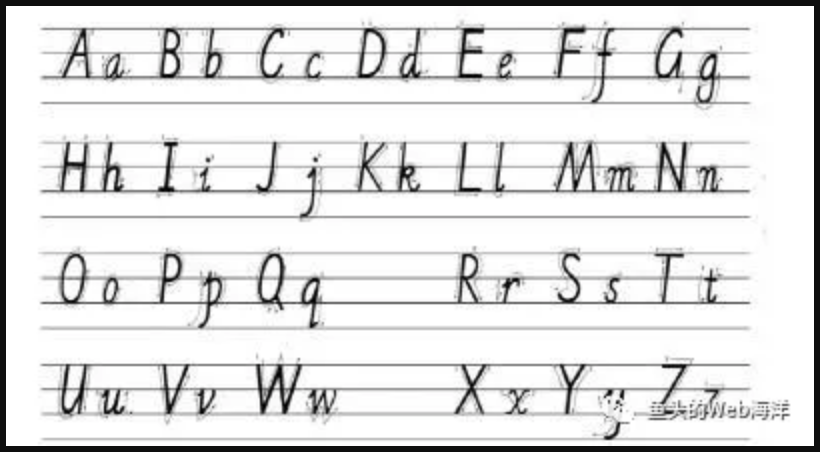 Aa Bb Cc Dd Ee Ff Gg
Hh Ii Jj Kk Ll Mm Nn
Oo Pp Qq Rr Ss Tt
Uu Vv Ww Xx Yy Zz
鱼头的Web海洋